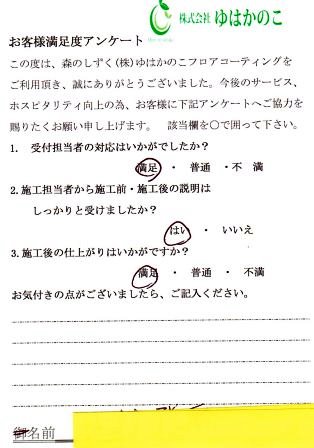 株式会社 ゆはかのこ
お客様満足度アンケート
この度は、森のしずく(株)ゆはかのこフロアコーティングを
ご利用頂き、誠にありがとうございました。今後のサービス、
ホスピタリティ向上の為、お客様に下記アンケートへご協力を
賜りたくお願い申し上げます。 該当欄を○で囲って下さい。
1. 受付担当者の対応はいかがでしたか?
満足 ・ 普通 ・不 満
2.施工担当者から施工前・施工後の説明は
しっかりと受けましたか?
はい ・ いいえ
3.施工後の仕上がりはいかがですか?
満足 ・ 普通 ・ 不満
お気付きの点がございましたら、ご記入ください。
御名前